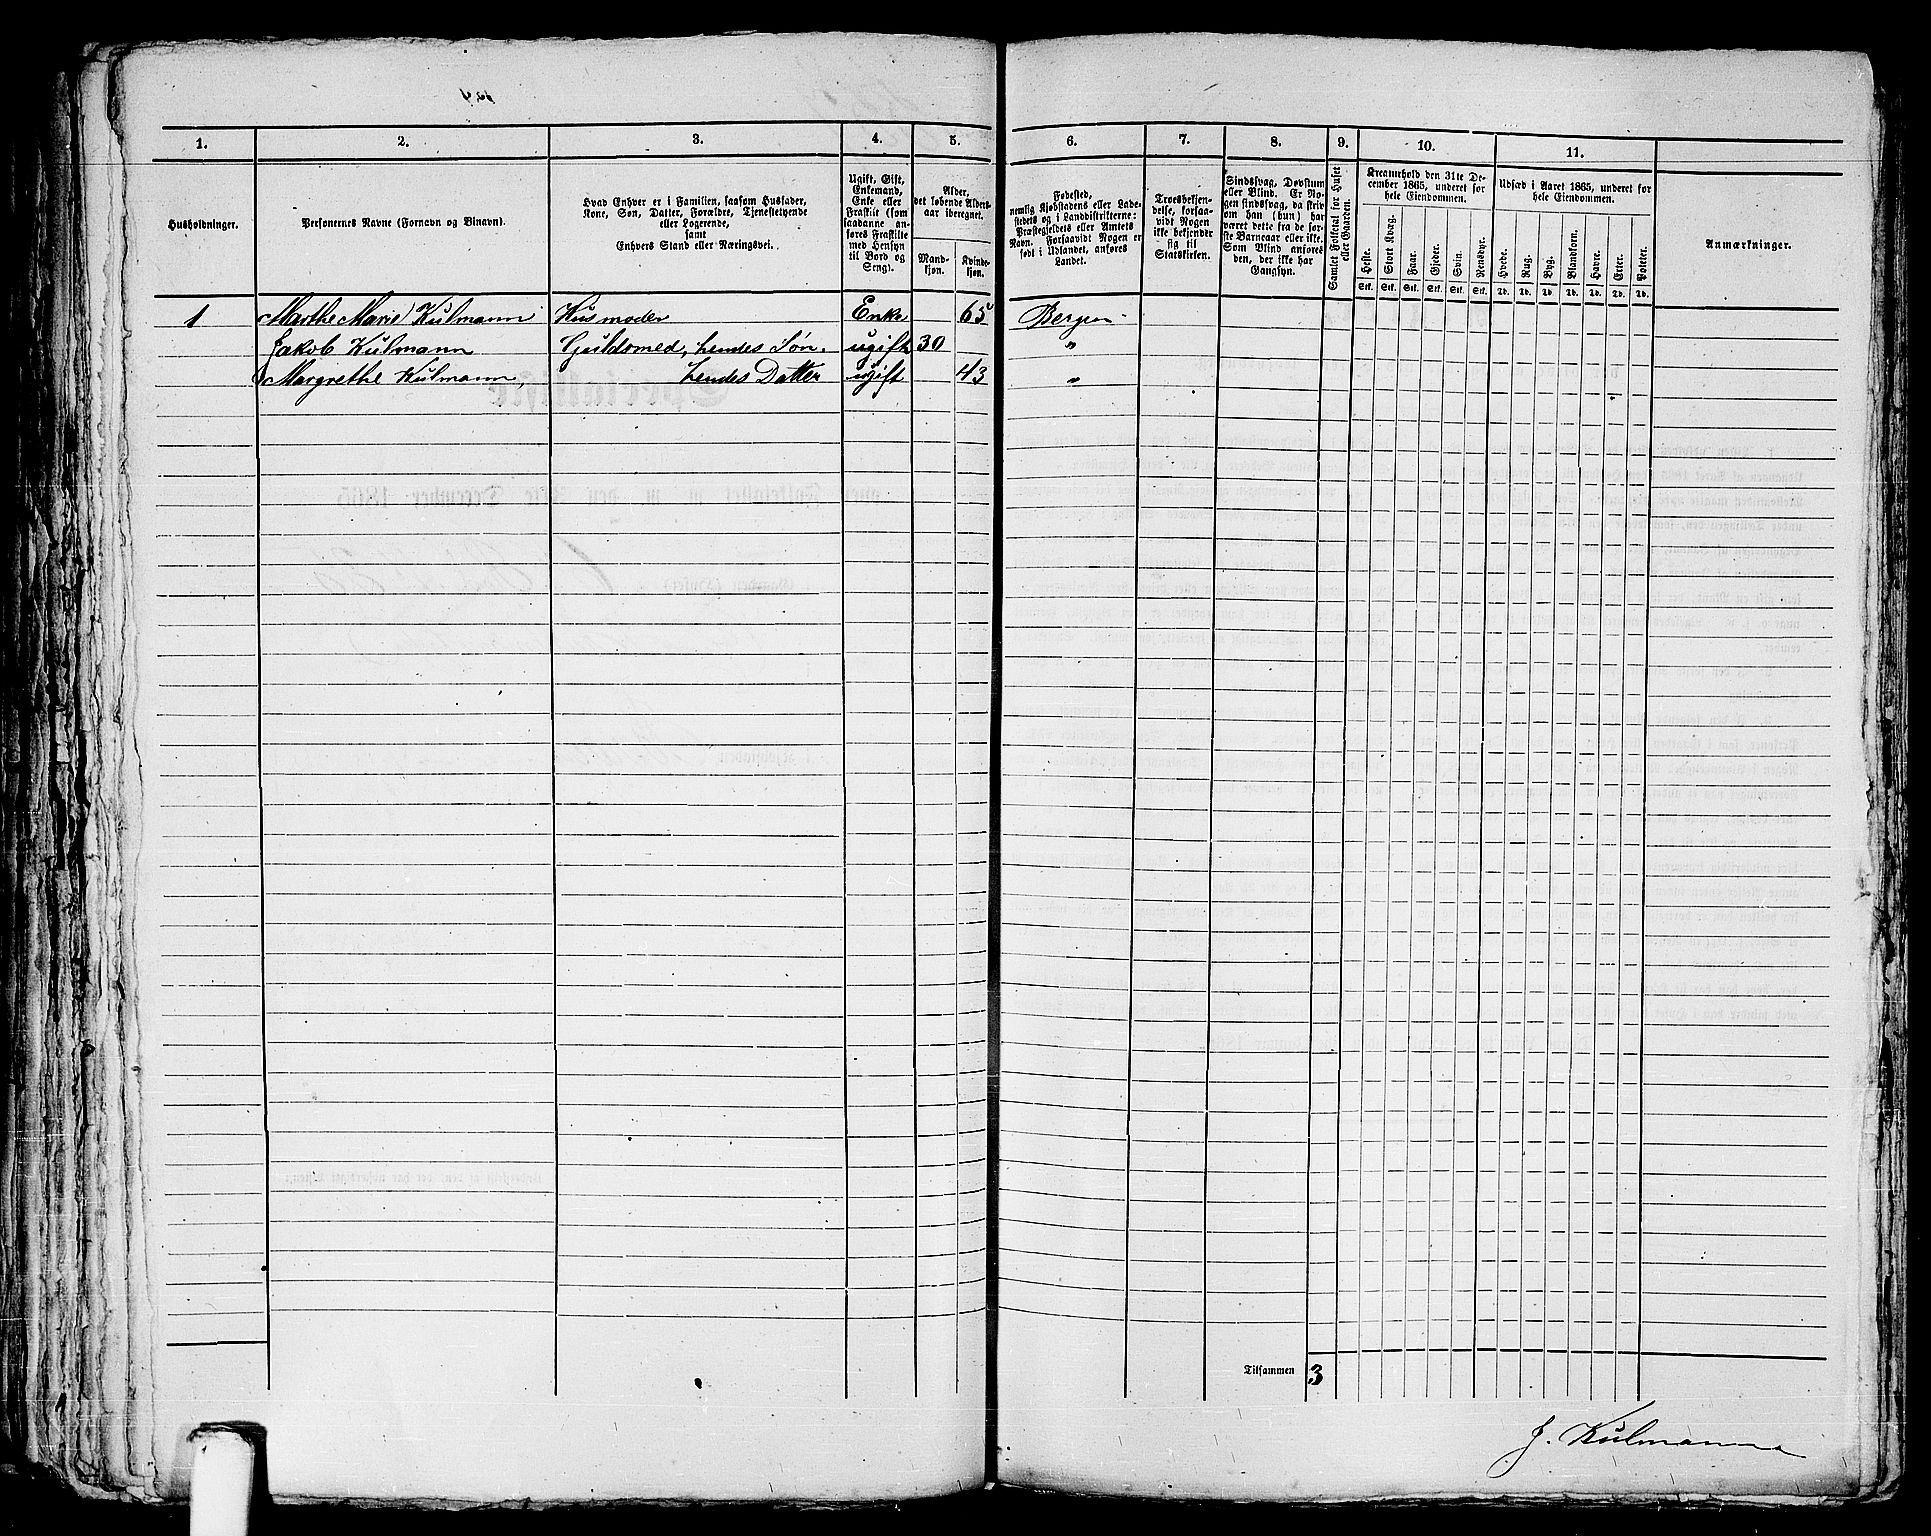 1. 2. 3. 4. 5. 6. 7. 8. 9. 10. 11.
Husholdninger.
Personernes Navne (Fornavn og Tilnavn).
Hvad Enhver er i Familien, saasom Husfader,
Kone, Søn, Datter, Forældre, Tjenestetyende
eller Logerende,
samt
Enhvers Stand eller Næringsvei.
Ugift, Gift,
Enkemand,
Enke eller
Fraskilt (som
saadanne an-
føres Fraskilte
med Hensyn
til Bord og
Seng).
Alder,
det løbende Alders-
aar iberegnet.
Mand-
kjøn.
Kvinde-
kjøn.
Fødested,
nemlig Kjøbstadens eller Lade-
stedets og i Landdistrikterne:
Præstegjeldets eller Amtets
Navn. Forsaavidt Nogen er
født i Udlandet, anføres
Landet.
Troesbekjen-
delse, forsaa-
vidt Nogen
ikke bekjender
sig til
Statskirken.
Sindssvag, Døvstum
eller Blind. Er No-
gen sindssvag, da skriv
om han (hun) har
været dette fra de før-
ste Barneaar eller ikke.
Som Blind anføres
den, der ikke har
Gangsyn.
Samlet Folketal for Huset
eller Gaarden.
Kreaturhold den 31te De-
cember 1865, underet for
hele Eiendommen.
Heste. Stort Kvæg. Faar. Gjeder. Svin. Rensdyr.
Stk. Stk. Stk. Stk. Stk. Stk.
Udsæd i Aaret 1865, underet for
hele Eiendommen.
Hvede. Rug. Byg. Blandkorn. Havre. Erter. Poteter.
Td. Td. Td. Td. Td. Td. Td.
Anmærkninger.
1 Marthe Marie Kulmann Husmoder Enke 65 Bergen
Jakob Kulmann Guldsmed, hendes Søn. ugift 30 "
Margrethe Kulmann, hendes Datter ugift 43 "
Tilsammen 3
J. Kulmann